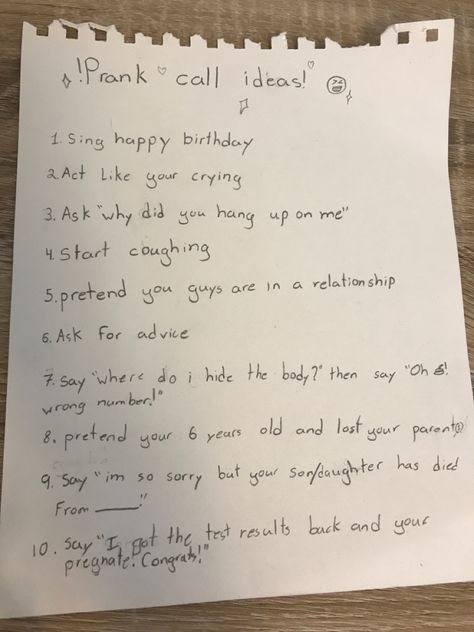 !Prank call ideas!
1. Sing happy birthday
2. Act Like your crying
3. Ask "why did you hang up on me"
4. Start coughing
5. pretend you guys are in a relationship
6. Ask for advice
7. Say "where do i hide the body?" then say "Oh s!
wrong number!"
8. pretend your 6 years old and lost your parent
9. Say "im so sorry but your son/daughter has died
From ____!"
10. Say "I got the test results back and your
pregnate! Congrats!"